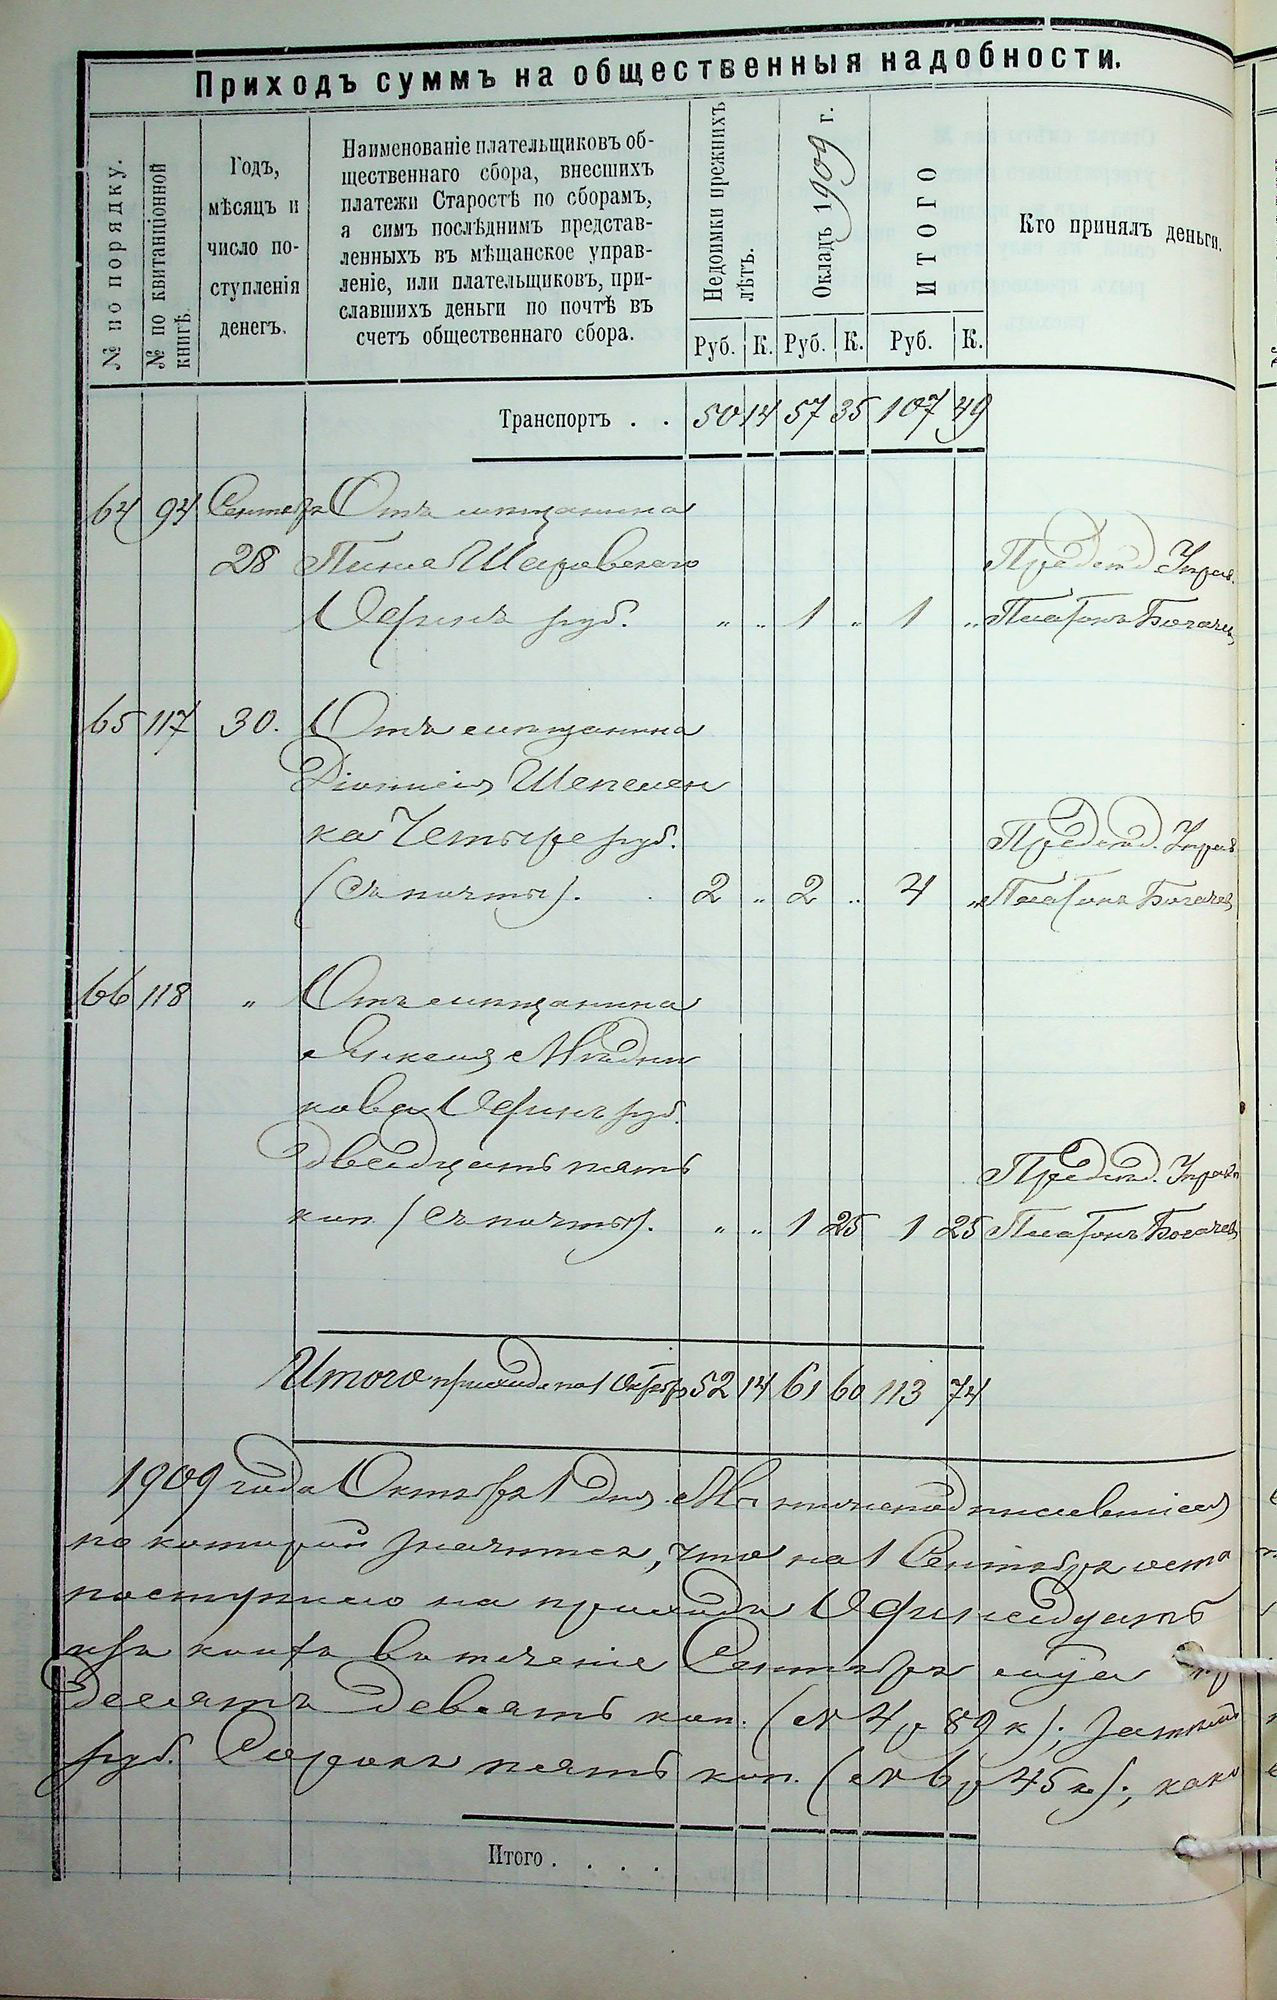 Приходъ суммъ на общественныя надобности.
№ по порядку.
№ по квитанціонной книгѣ.
Годъ,
мѣсяцъ и
число по-
ступленія
денегъ.
Наименованіе плательщиковъ об-
щественнаго сбора, внесшихъ
платежи Старостѣ по сборамъ,
а симъ послѣднимъ представ-
ленныхъ въ мѣщанское управ-
леніе, или плательщиковъ, при-
славшихъ деньги по почтѣ въ
счетъ общественнаго сбора.
Недоимки прежнихъ
лѣтъ.
Окладъ 1909 г.
ИТОГО
Кто принялъ деньги.
Руб. К. Руб. К. Руб. К.
Транспортъ . . 50 14 57 35 107 49
64 94 Сентября Отъ мѣщанина
28 Шаровскаго Предсѣд. Управ.
Одинъ руб. „ „ 1 „ 1 „ Платонъ Богачев
65 117 30. Отъ мѣщанина
Діонисія Шепелен
ка Четыре руб. Предсѣд. Управ
(Съ почты). 2 „ 2 „ 4 „ Платонъ Богачев
66 118 „ Отъ мѣщанина
Алексѣя Мѣдни
кова Одинъ руб.
двадцать пять Предсѣд. Управ
коп (Съ почты). „ „ 1 25 1 25 Платонъ Богачев
Итого прихода по 1 Октября 52 14 61 60 113 74
1909 года Октября 1 дня. Мы нижеподписавшіеся
по которой значится, что на 1 Сентября оста
поступило на приходъ Одинадцать
въ теченіе Сентября
десятъ девять коп. (4 р 89 к); затѣмъ
руб. Сорокъ пять коп. (6 р 45 к); како
Итого . . . .